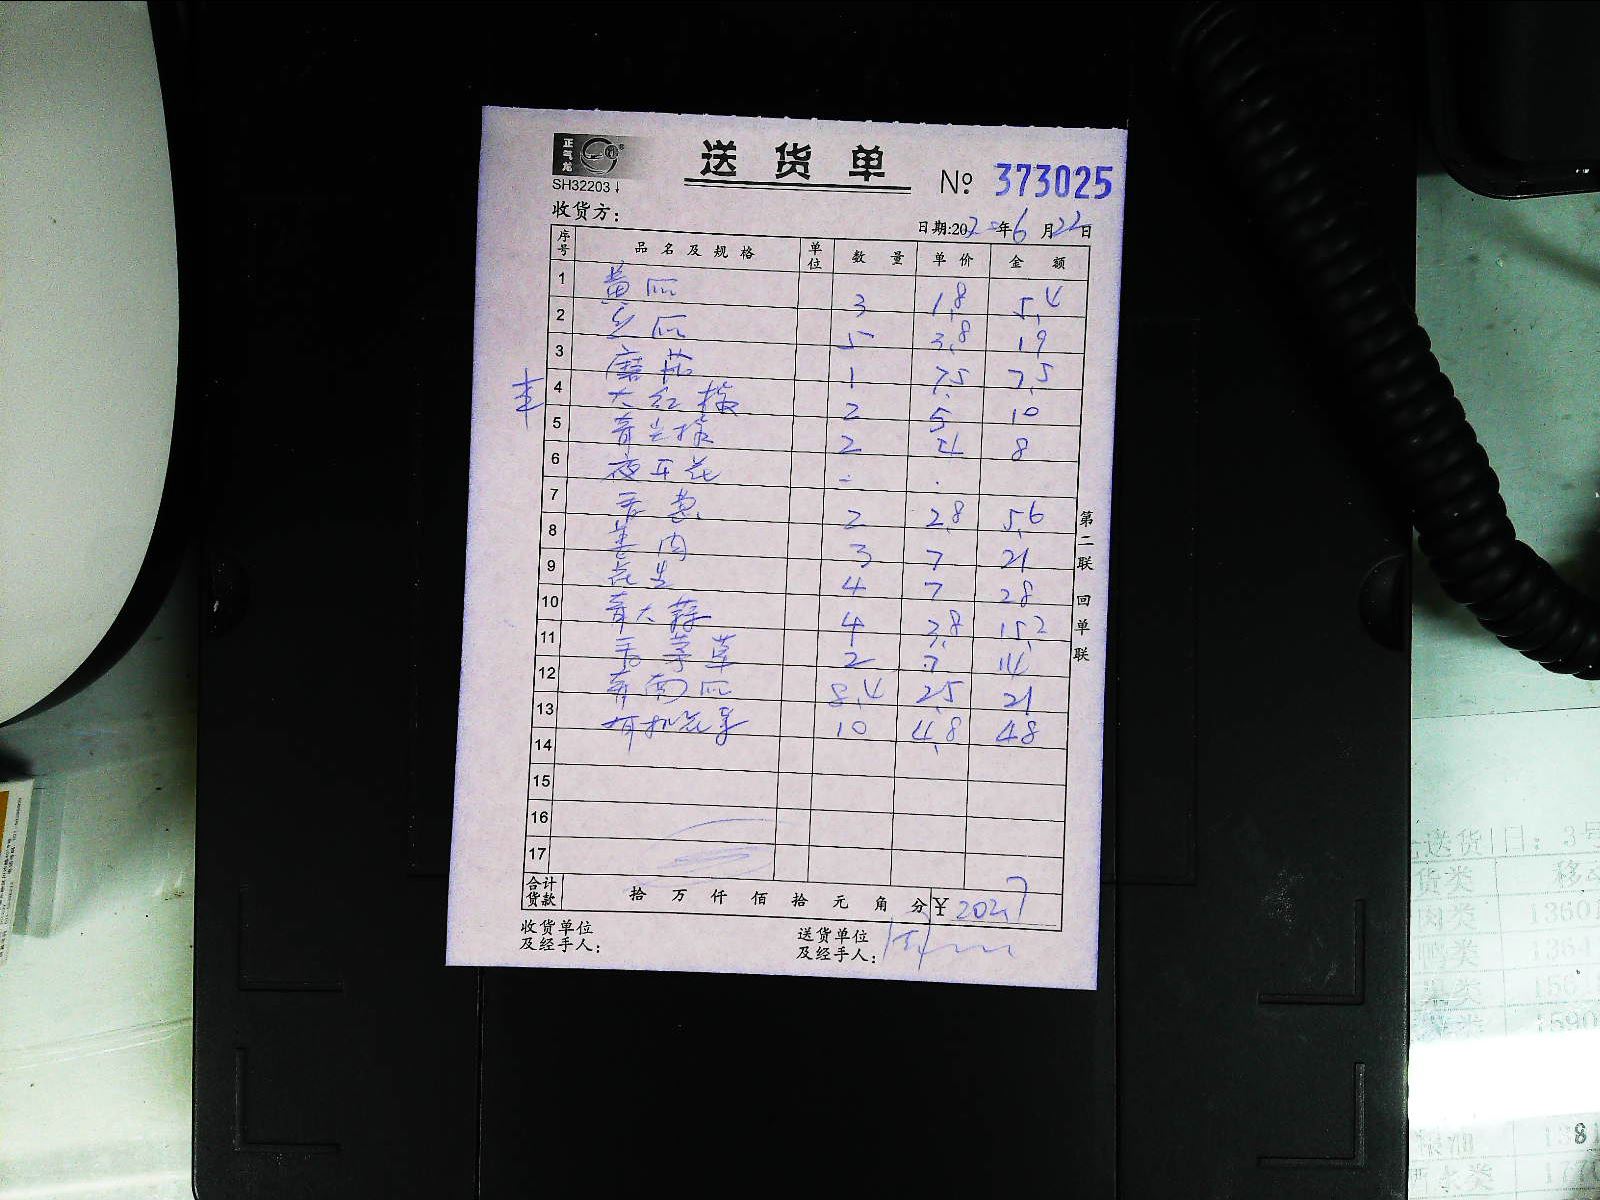 正气龙
SH32203↓
送货单
№ 373025
收货方：
日期:202 年6月22日
序号 品名及规格 单位 数量 单价 金额
1 黄瓜 3 1.8 5.4
2 冬瓜 5 3.8 19
3 蘑菇 1 7.5 7.5
4 大红椒 2 5 10
5 青尖椒 2 4 8
6 夜开花
7 香葱 2 2.8 5.6
8 姜肉 3 7 21
9 花生 4 7 28
10 青大蒜 4 3.8 15.2
11 香茅草 2 7 14
12 南瓜 8.4 2.5 21
13 有机花菜 10 4.8 48
14
15
16
17
合计货款 拾 万 仟 佰 拾 元 角 分 ￥ 202.7
收货单位
及经手人：
送货单位
及经手人：
第二联 回单联
送货 日：3号
货类 移动
肉类 1360
鸭类 1364
类 156
类 1590
粮油
水类 177